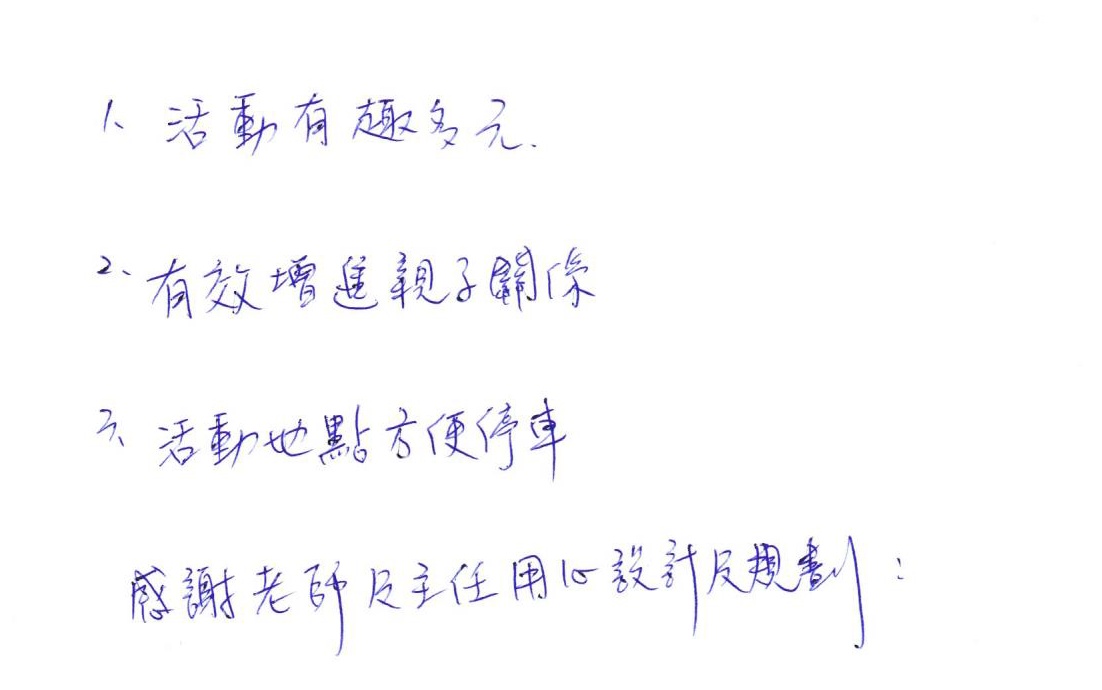 1、活動有趣多元.
2、有效增進親子關係
3、活動地點方便停車
感謝老師及主任用心設計及規劃: